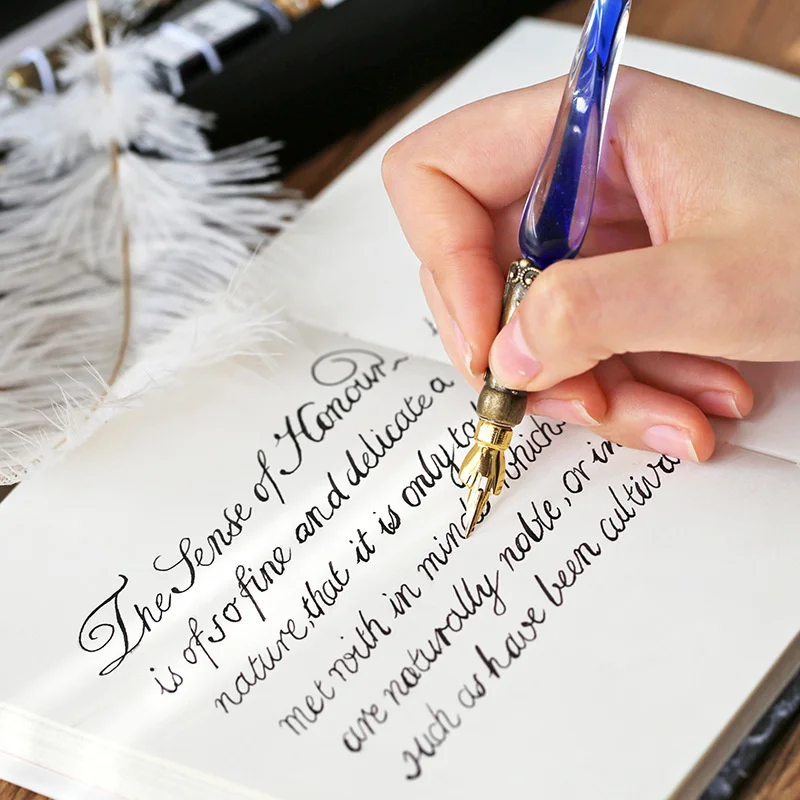 The Sense of Honour
is of so fine and delicate a
nature, that it is only to
met with in minds which
are naturally noble, or in
such as have been